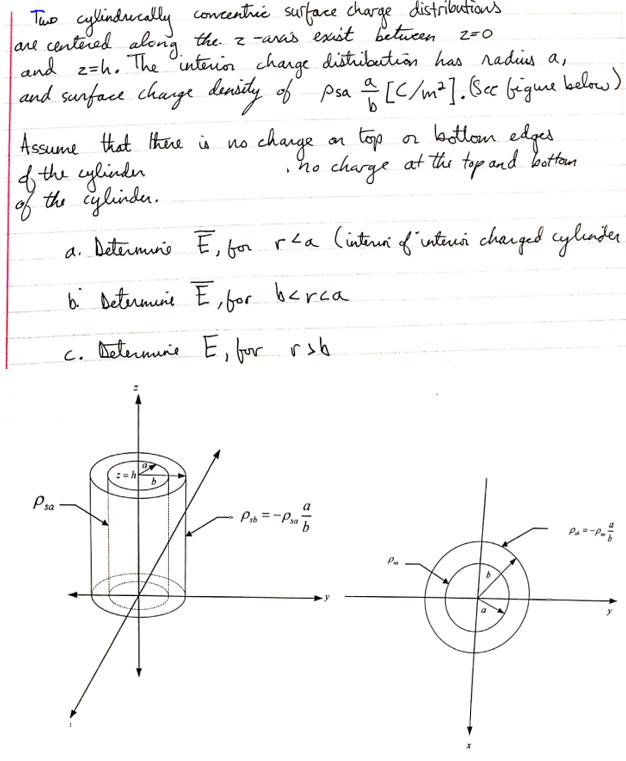 Two cylindrically concentric surface charge distributions
are centered along the z-axis exist between z=0
and z=h. The interior charge distribution has radius a,
and surface charge density of ρsa a/b [C/m²]. (See figure below)
Assume that there is no charge on top or bottom edges
of the cylinder . no charge at the top and bottom
of the cylinder.
a. Determine E̅, for r<a (interior of interior charged cylinder
b. Determine E̅, for b<r<a
c. Determine E, for r>b
z
z = h
a
b
ρsa
ρsb = -ρsa a/b
y
ρsb = -ρsa a/b
ρsa
b
a
y
x